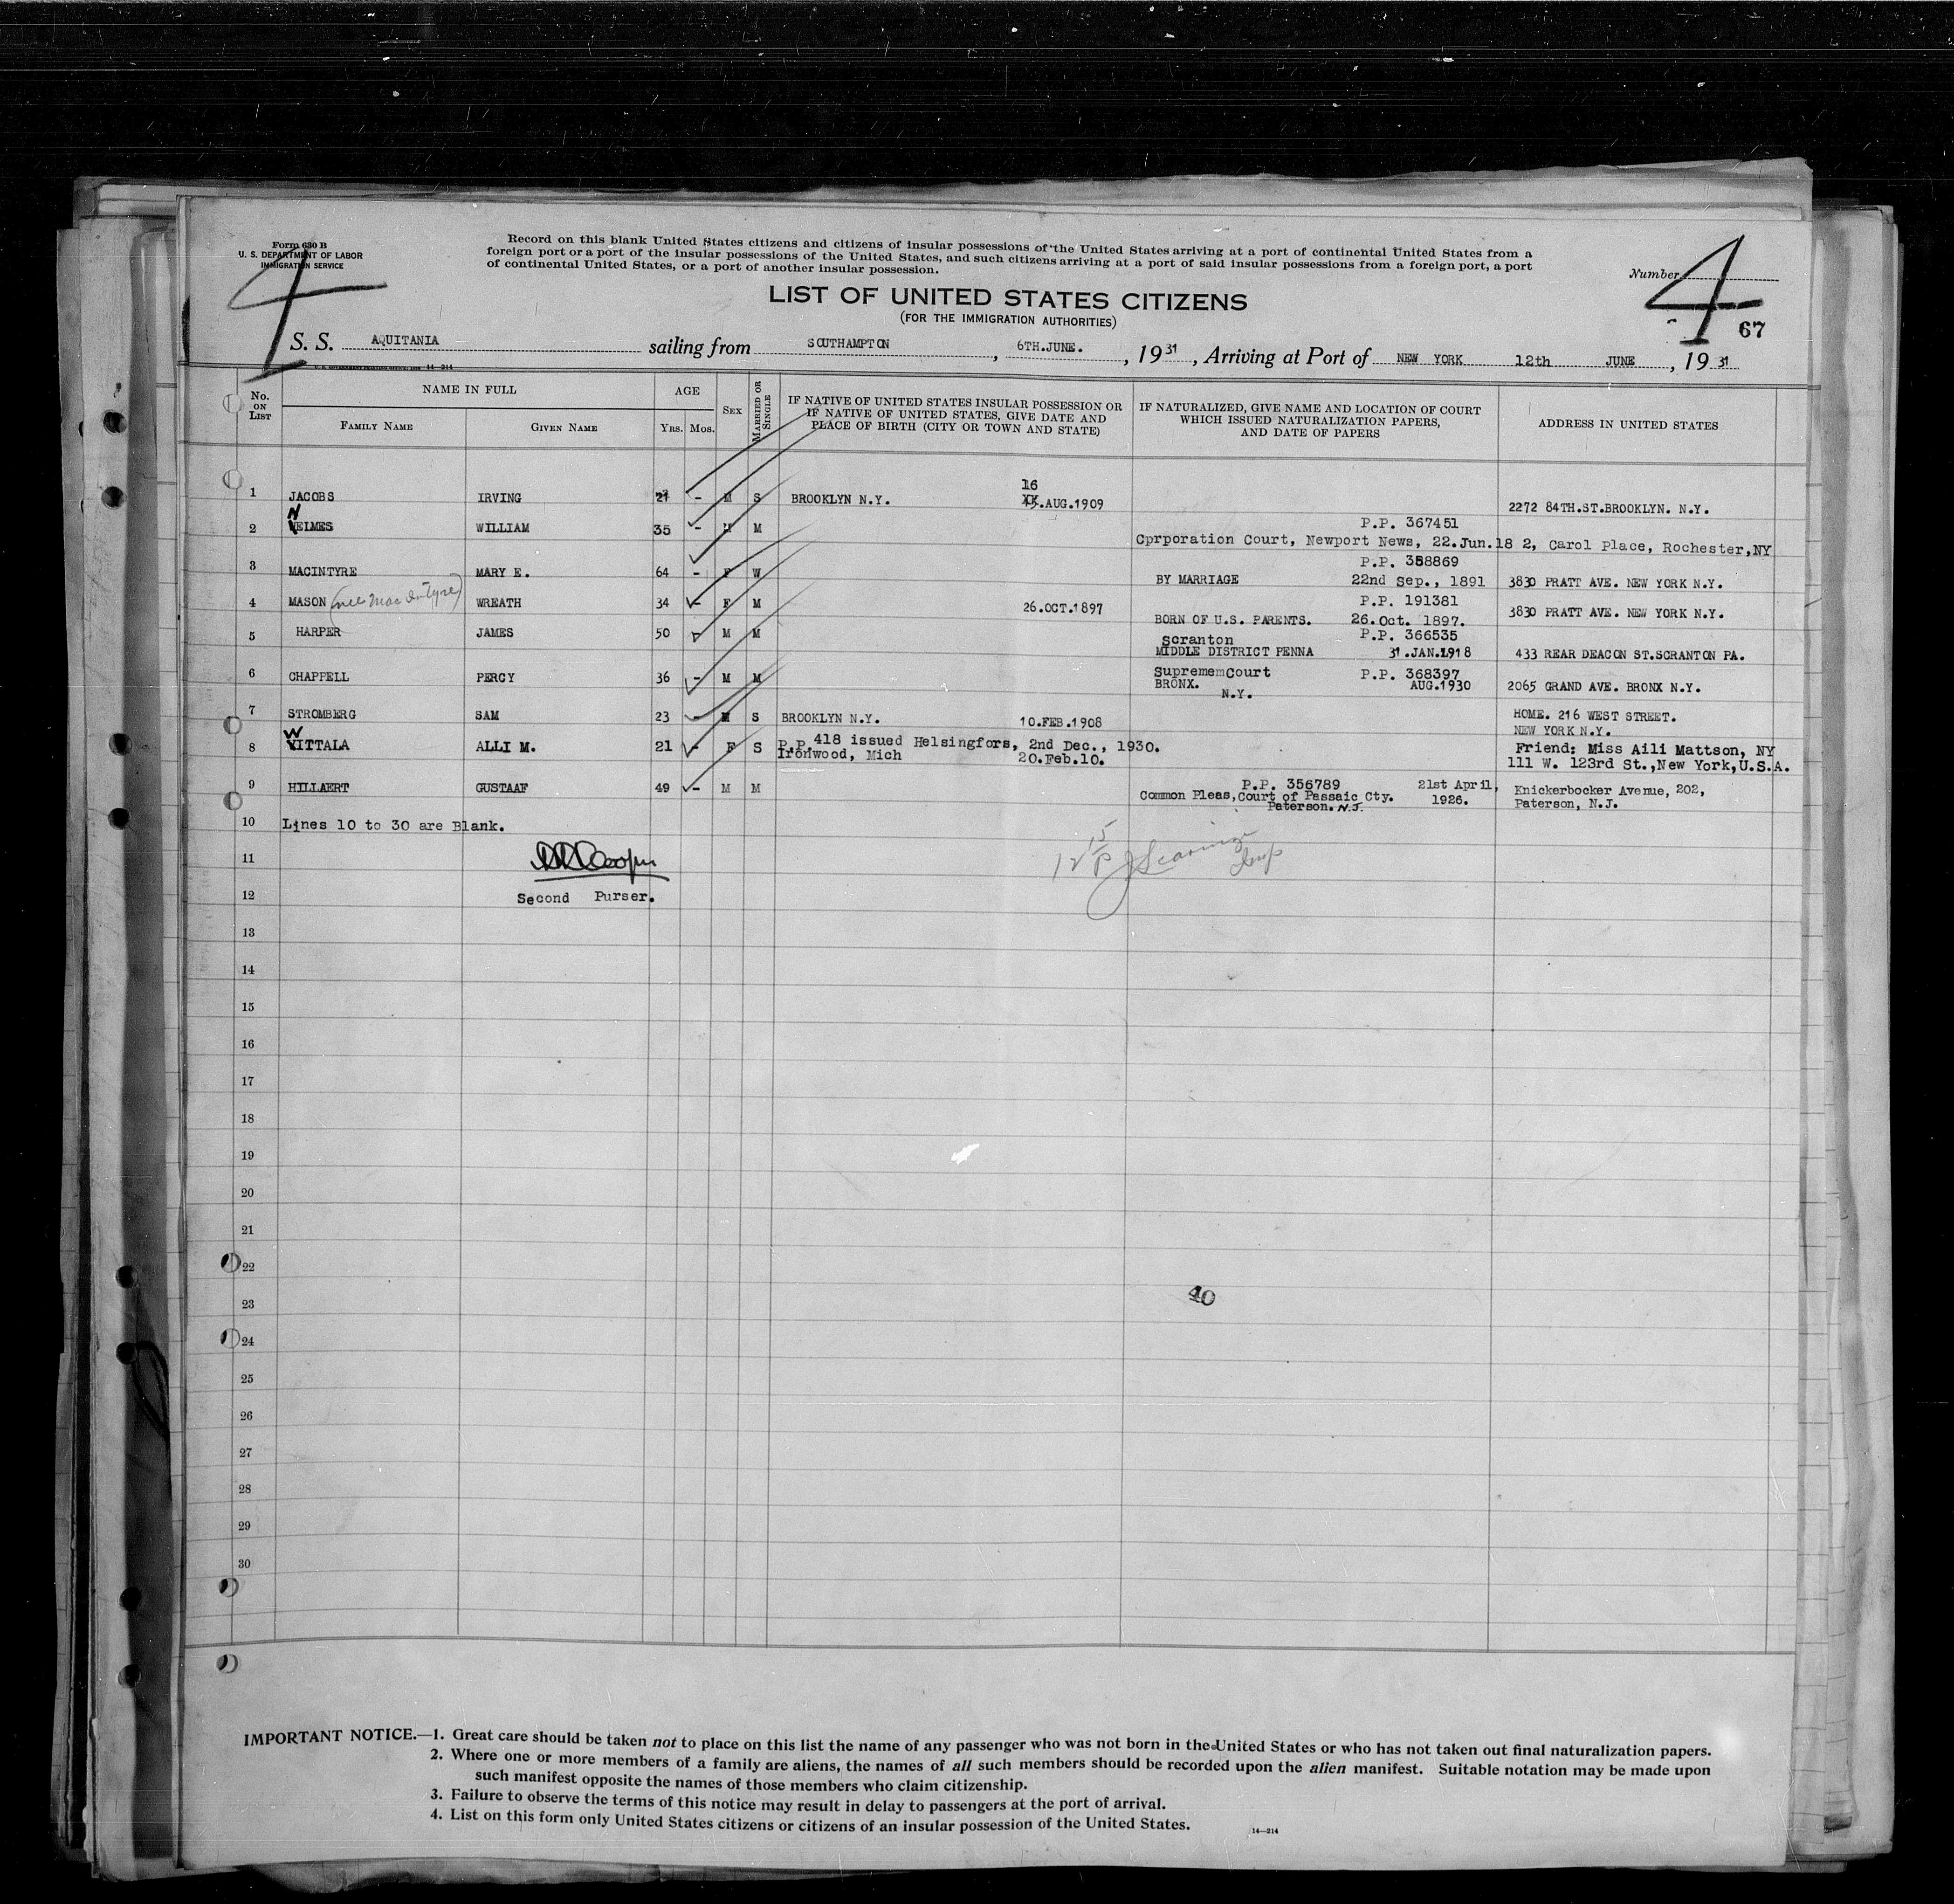 Form 630 B
U. S. DEPARTMENT OF LABOR
IMMIGRATION SERVICE
4
Record on this blank United States citizens and citizens of insular possessions of the United States arriving at a port of continental United States from a
foreign port or a port of the insular possessions of the United States, and such citizens arriving at a port of said insular possessions from a foreign port, a port
of continental United States, or a port of another insular possession.
Number 4
67
LIST OF UNITED STATES CITIZENS
(FOR THE IMMIGRATION AUTHORITIES)
S. S. AQUITANIA sailing from SOUTHAMPTON, 6TH.JUNE., 1931, Arriving at Port of NEW YORK 12th JUNE, 1931
14—214
No. ON LIST
NAME IN FULL
FAMILY NAME
GIVEN NAME
AGE
YRS. MOS.
SEX
MARRIED OR SINGLE
IF NATIVE OF UNITED STATES INSULAR POSSESSION OR
IF NATIVE OF UNITED STATES, GIVE DATE AND
PLACE OF BIRTH (CITY OR TOWN AND STATE)
IF NATURALIZED, GIVE NAME AND LOCATION OF COURT
WHICH ISSUED NATURALIZATION PAPERS,
AND DATE OF PAPERS
ADDRESS IN UNITED STATES
16
1 JACOBS IRVING 21 - M S BROOKLYN N.Y. XX.AUG.1909 2272 84TH.ST.BROOKLYN. N.Y.
N
2 ELMES WILLIAM 35 - M M P.P. 367451
Cprporation Court, Newport News, 22.Jun.18 2, Carol Place, Rochester,NY
P.P. 358869
3 MACINTYRE MARY E. 64 - F W BY MARRIAGE 22nd Sep., 1891 3830 PRATT AVE. NEW YORK N.Y.
P.P. 191381
4 MASON (nee MacIntyre) WREATH 34 - F M 26.OCT.1897 3830 PRATT AVE. NEW YORK N.Y.
BORN OF U.S. PARENTS. 26.Oct. 1897.
5 HARPER JAMES 50 M M Scranton P.P. 366535
MIDDLE DISTRICT PENNA 31.JAN.1918 433 REAR DEACON ST.SCRANTON PA.
6 CHAPPELL PERCY 36 - M M SuprememCourt P.P. 368397
BRONX. AUG.1930 2065 GRAND AVE. BRONX N.Y.
N.Y.
7 STROMBERG SAM 23 - M S BROOKLYN N.Y. 10.FEB.1908 HOME. 216 WEST STREET.
NEW YORK N.Y.
8 WITTALA ALLI M. 21 - F S P.P.418 issued Helsingfors, 2nd Dec., 1930. Friend: Miss Aili Mattson, NY
Ironwood, Mich 20.Feb.10. 111 W. 123rd St.,New York,U.S.A.
9 HILLAERT GUSTAAF 49 - M M P.P. 356789 21st April, Knickerbocker Avenue, 202,
Common Pleas,Court of Passaic Cty. 1926. Paterson, N.J.
Paterson. N.J.
10 Lines 10 to 30 are Blank.
11
12 Second Purser.
13
14
15
16
17
18
19
20
21
22
23
40
24
25
26
27
28
29
30
IMPORTANT NOTICE.—1. Great care should be taken not to place on this list the name of any passenger who was not born in the United States or who has not taken out final naturalization papers.
2. Where one or more members of a family are aliens, the names of all such members should be recorded upon the alien manifest. Suitable notation may be made upon
such manifest opposite the names of those members who claim citizenship.
3. Failure to observe the terms of this notice may result in delay to passengers at the port of arrival.
4. List on this form only United States citizens or citizens of an insular possession of the United States.
14—214